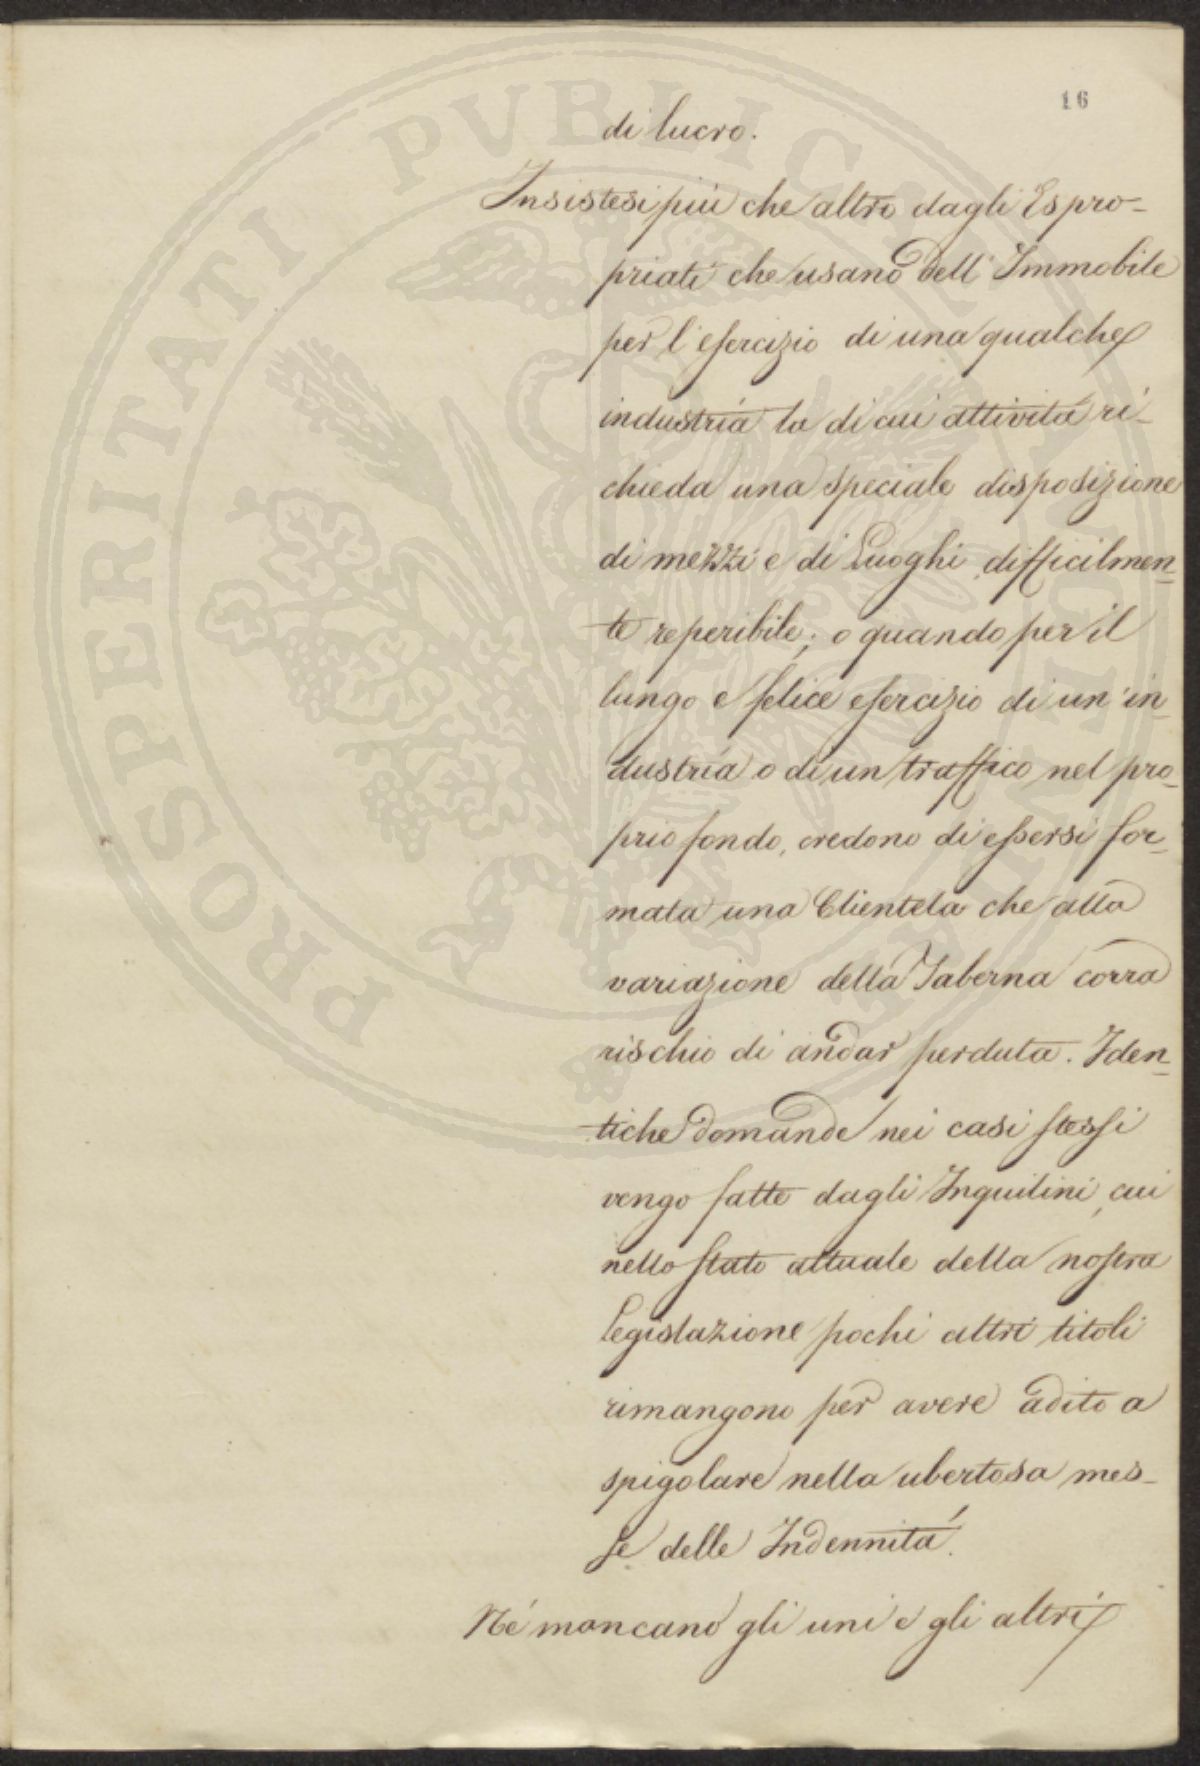 16
di lucro.
Insistesi più che altro dagli Espro-
priati che usano dell'Immobile
per l'esercizio di una qualche
industria la di cui attività ri-
chieda una speciale disposizione
di mezzi e di Luoghi difficilmen-
te reperibile; o quando per il
lungo e felice esercizio di un'in-
dustria o di un traffico nel pro-
prio fondo, credono di essersi for-
mata una Clientela che alla
variazione della Taberna corra
rischio di andar perduta. Iden-
tiche domande nei casi stessi
vengo fatte dagli Inquilini, cui
nello stato attuale della nostra
Legislazione pochi altri titoli
rimangono per avere adito a
spigolare nella ubertosa mes-
se delle Indennità.
Né mancano gli uni e gli altri
PROSPERITATI PVBLICAE AVGENDAE